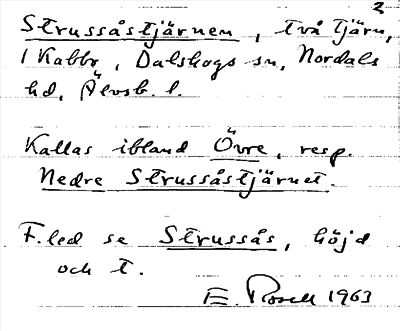 2
Strussåstjärnen, två tjärn,
i Kabbo, Dalskogs sn, Nordals
hd, Älvsb. l.
Kallas ibland Övre, resp.
Nedre Strussåstjärnet.
F.led se Strussås, höjd
och t.
E. Rosell 1963